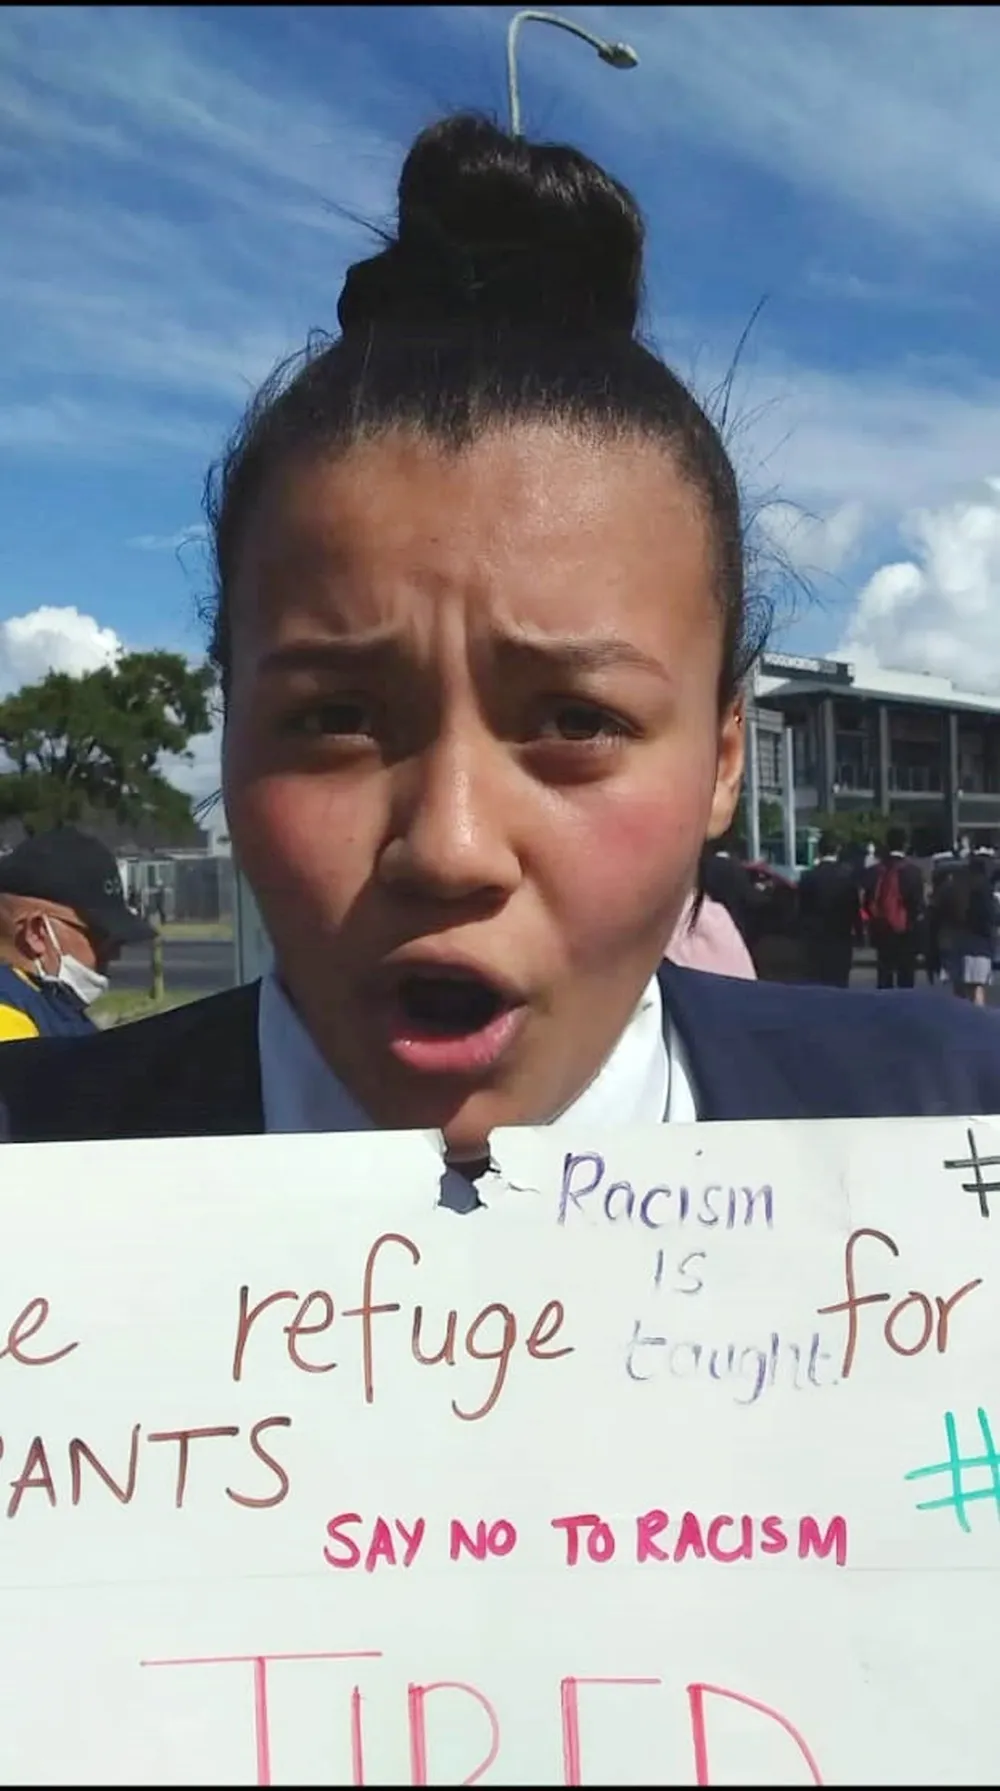 Racism
is
taught.
#
e refuge for
ANTS
#
SAY NO TO RACISM
TIRED
WOOLWORTHS